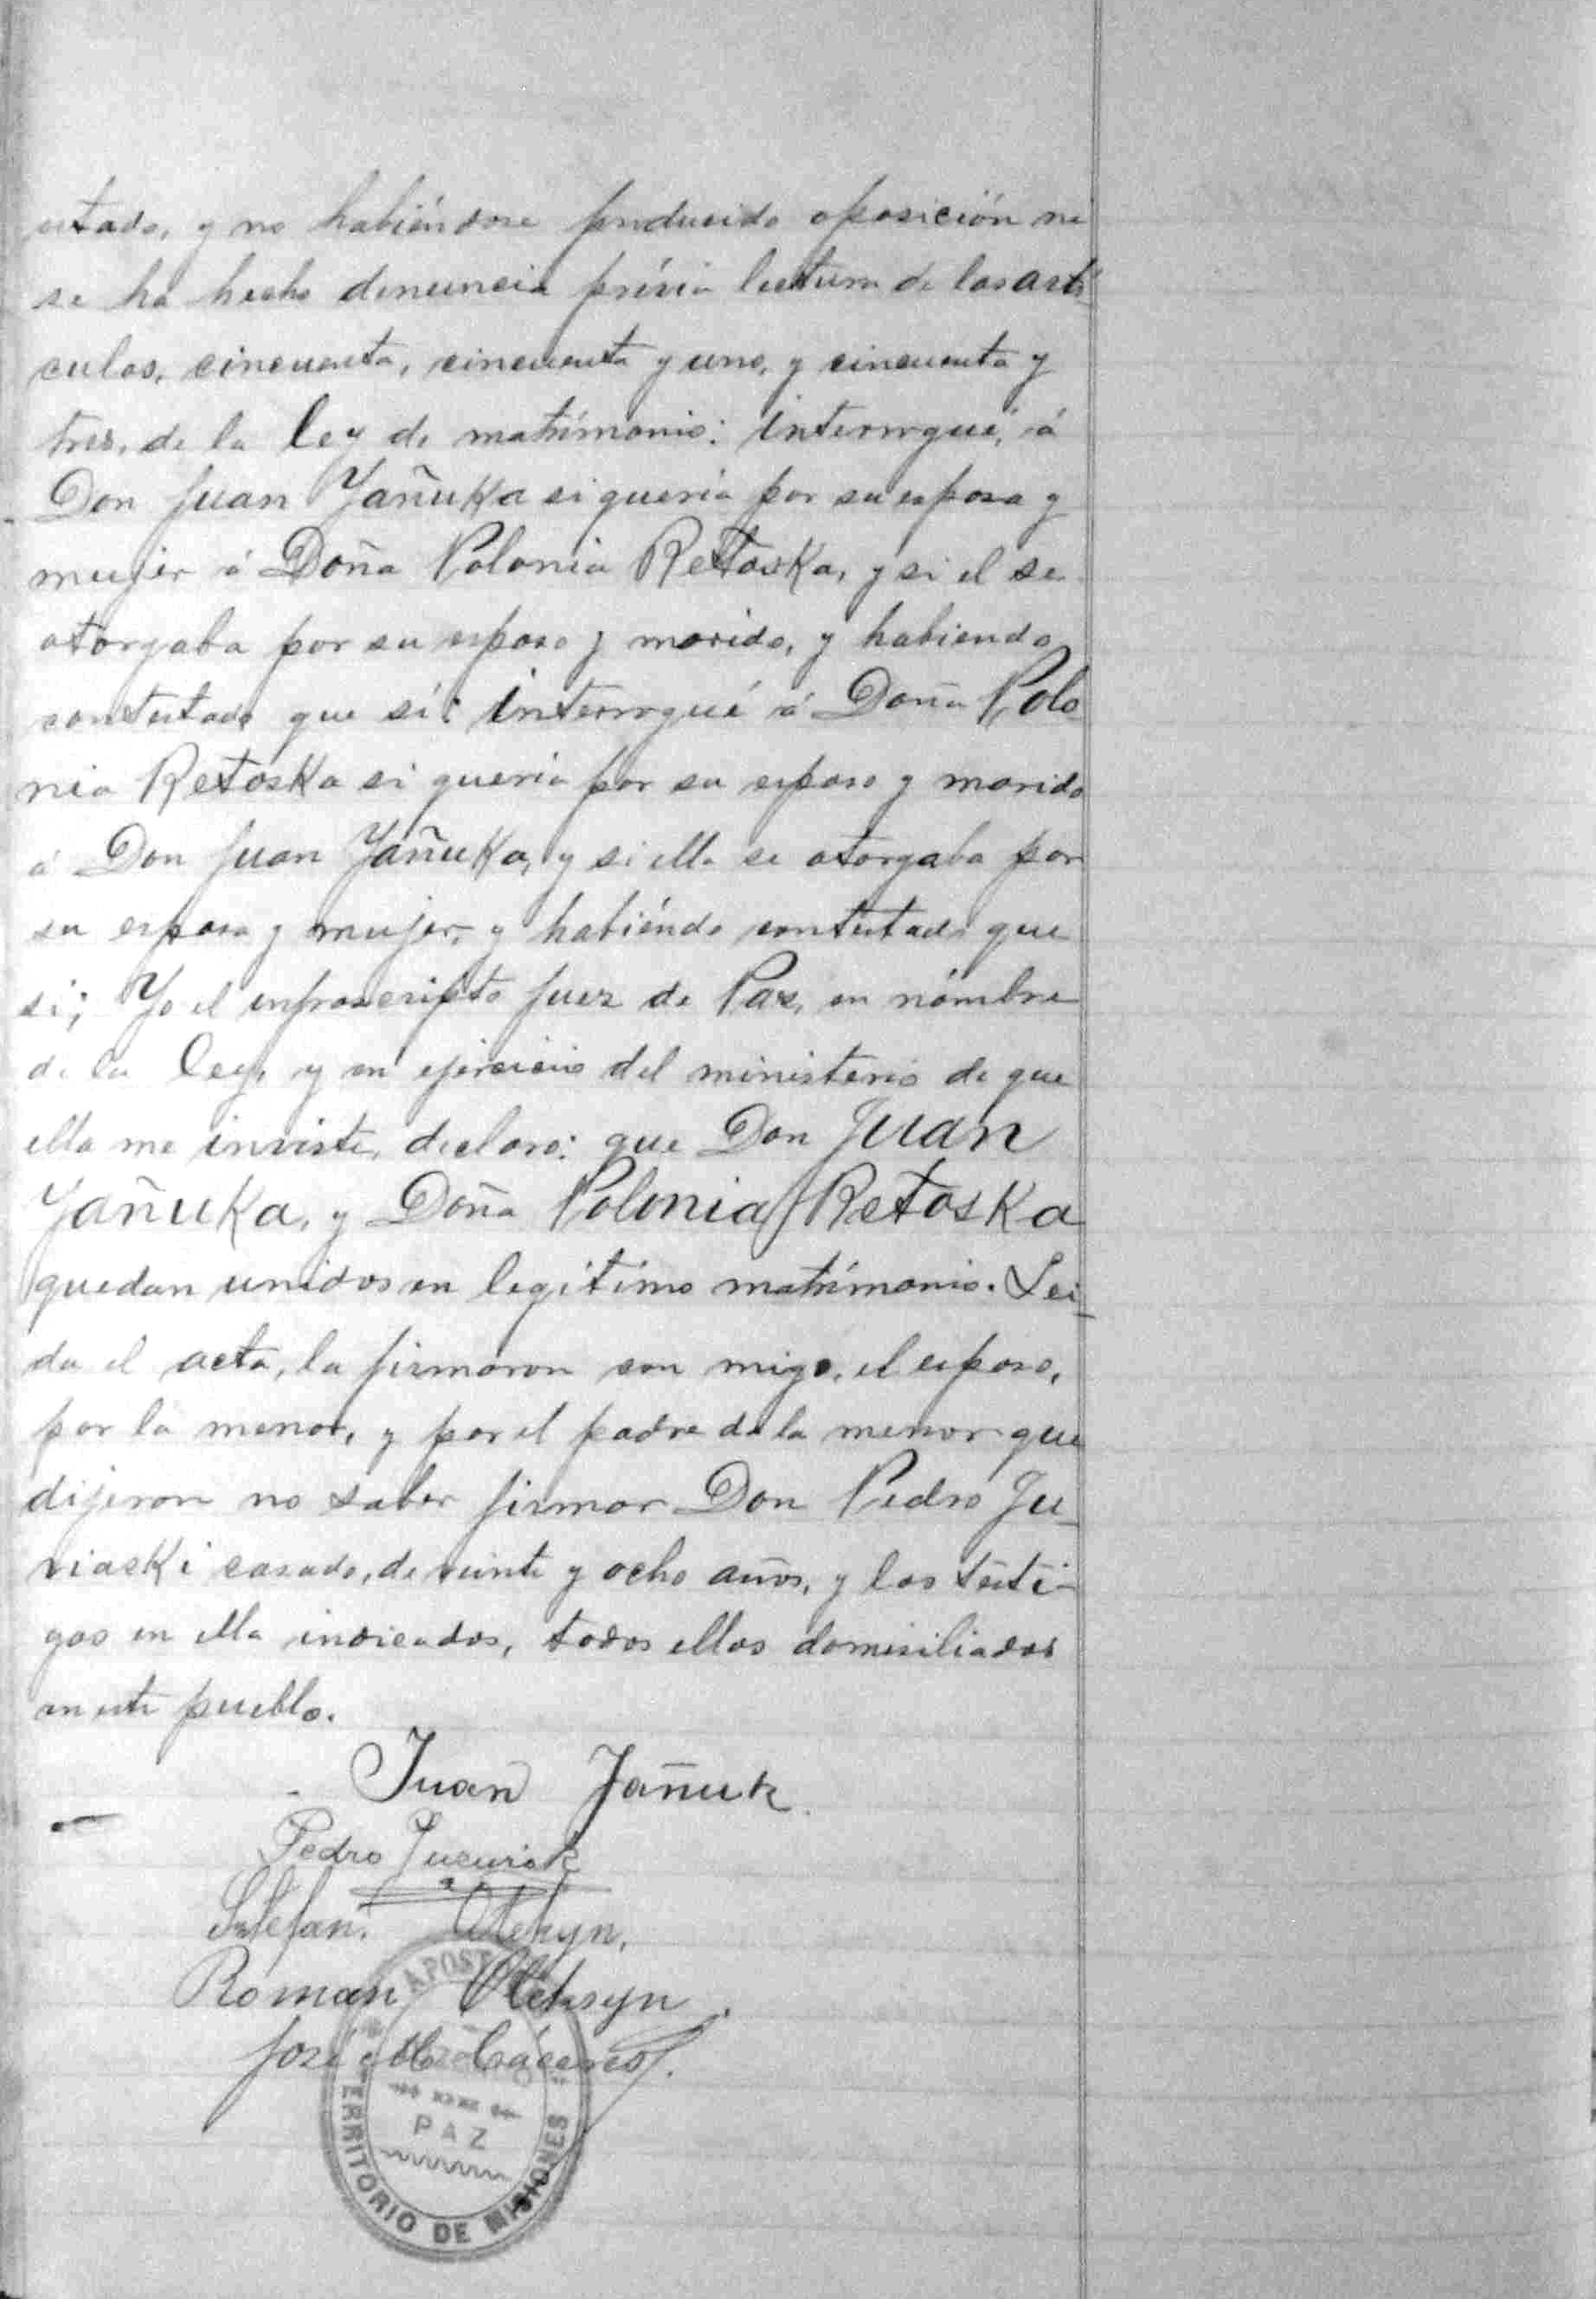 estado, y no habiéndose producido oposición ne
se ha hecho denuncia prévia lectura de los artí
culos, cincuenta, cincuenta y uno, y cincuenta y
tres, de la ley de matrimonio: interrogué, á
Don Juan Yañuka si queria por su esposa y
mujer á Doña Polonia Retoska, y si el se
otorgaba por su esposo y marido, y habiendo
contestado que sí: interrogué á Doña Polo
nia Retoska si queria por su esposo y marido
á Don Juan Yañuka, y si ella se otorgaba por
su esposa y mujer, y habiéndo contestado que
si; Yo el infrascripto Juez de Paz, en nómbre
de la ley, y en ejercicio del ministerio de que
ella me inviste, declaro: que Don Juan
Yañuka, y Doña Polonia Retoska
quedan unidos en legítimo matrimonio. Lei-
da el acta, la firmaron con migo, el esposo,
por la menor, y por el padre de la menor que
dijeron no saber firmar Don Pedro Ju-
viaski casado, de veinte y ocho años, y los testi-
gos en ella indicados, todos ellos domisiliados
en este pueblo.
Juan Jañuk.
Pedro
Stefan
Roman
José M. Cáceres
APOST
PAZ
TERRITORIO DE MISIONES